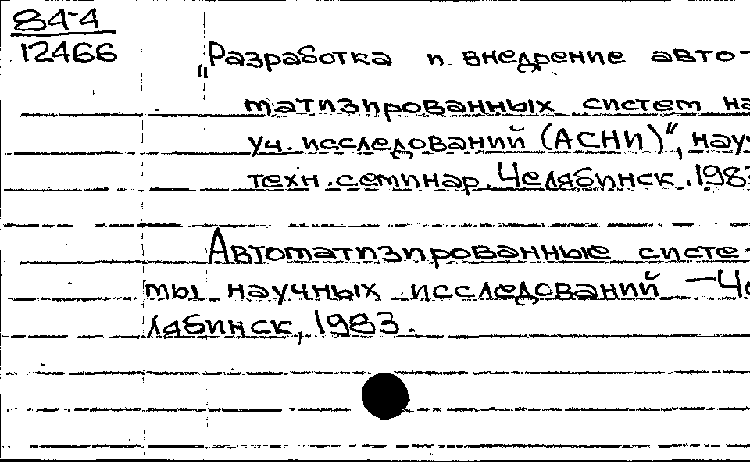 84-4
12466
„Разработка и внедрение авто-
матизированных систем на
уч. исследований (АСНИ)“, науч
техн. семинар. Челябинск. 1983
Автоматизированные систе-
мы научных исследований – Че
лябинск, 1983.